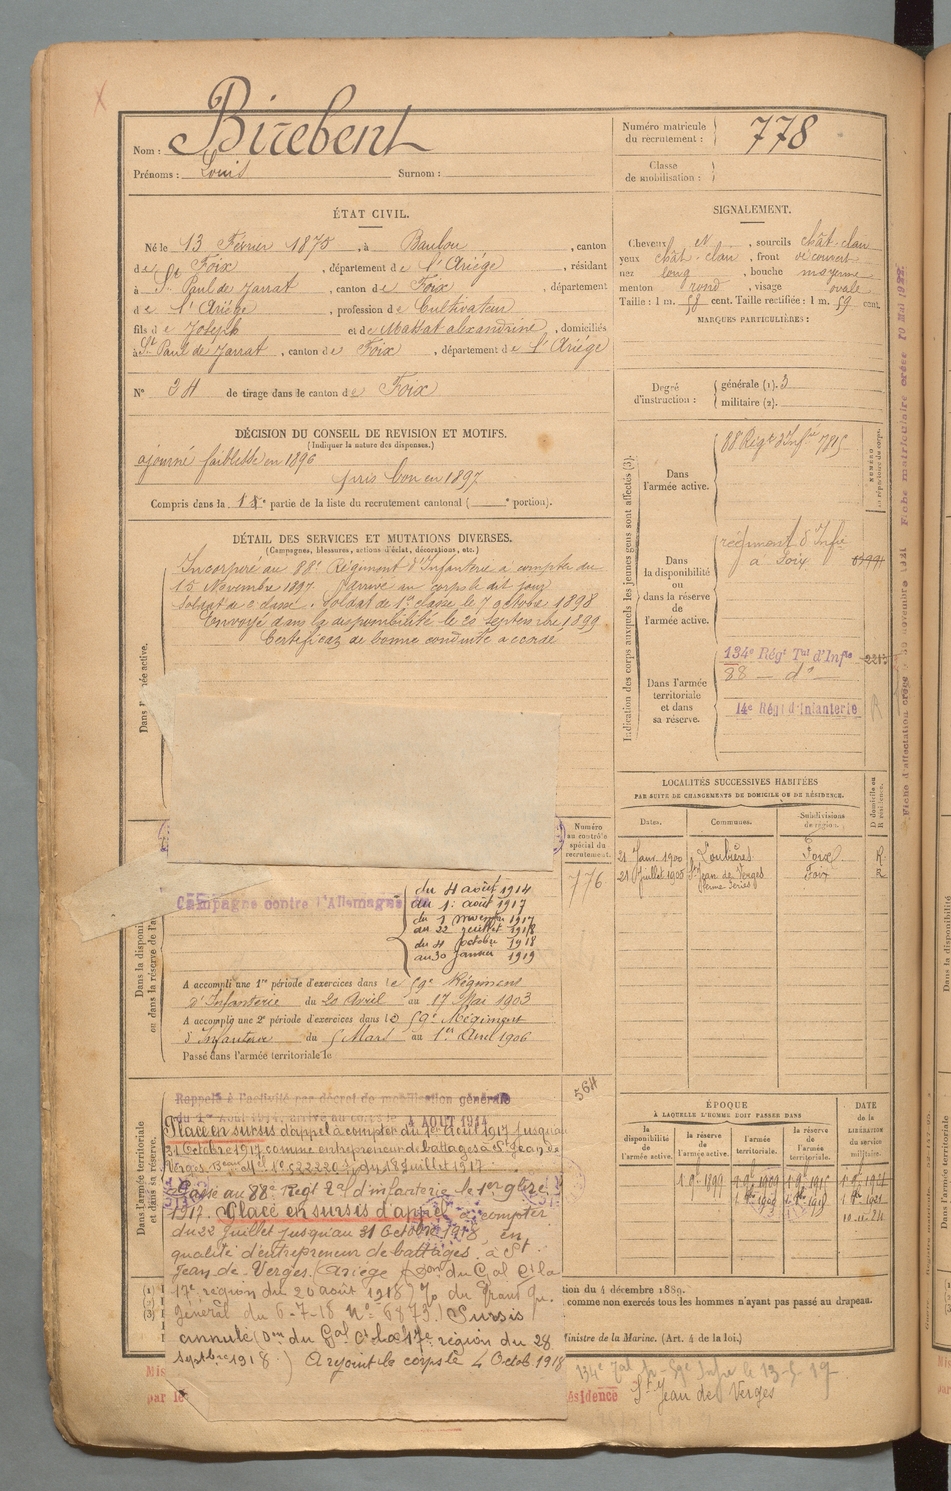 Nom : Birebent
Prénoms : Louis Surnom :
Numéro matricule du recrutement : 778
Classe de mobilisation :
ÉTAT CIVIL.
Né le 13 Février 1875, à Baulou, canton
de Foix, département de l'Ariége, résidant
à St Paul de Jarrat, canton de Foix, département
de l'Ariége, profession de Cultivateur
fils de Joseph et de Massat alexandrine, domiciliés
à St Paul de Jarrat, canton de Foix, département de l'Ariége
N° 34 de tirage dans le canton de Foix
SIGNALEMENT.
Cheveux N, sourcils chât-clair
yeux chât-clair, front découvert
nez long, bouche moyenne
menton rond, visage ovale
Taille : 1 m. 58 cent. Taille rectifiée : 1 m. 59 cent.
MARQUES PARTICULIÈRES :
Degré d'instruction :
générale (1). 3
militaire (2).
DÉCISION DU CONSEIL DE REVISION ET MOTIFS.
(Indiquer la nature des dispenses.)
ajourné faiblesse en 1896
pris bon en 1897
Compris dans la 1e partie de la liste du recrutement cantonal ( e portion).
DÉTAIL DES SERVICES ET MUTATIONS DIVERSES.
(Campagnes, blessures, actions d'éclat, décorations, etc.)
Incorporé au 88e Régiment d'Infanterie à compter du
15 Novembre 1897. arrivé au corps le dit jour
soldat de 2e classe. Soldat de 1re classe le 7 octobre 1898
Envoyé dans la disponibilité le 20 septembre 1899.
Certificat de bonne conduite accordé
Indication des corps auxquels les jeunes gens sont affectés (3).
Dans l'armée active.
88 Régt d'Infie 7815
Dans la disponibilité ou dans la réserve de l'armée active.
régiment d'Infie
à Foix
Dans l'armée territoriale et dans sa réserve.
134e Régt Tal d'Infie
88 — do —
14e Régt d'Infanterie
NUMÉRO
Fiche matriculaire créée 10 Mai 1922.
LOCALITÉS SUCCESSIVES HABITÉES
PAR SUITE DE CHANGEMENTS DE DOMICILE OU DE RÉSIDENCE.
Dates. Communes. Subdivisions de région. D domicile ou R résidence.
21 Janv. 1900 Loubières Foix R
21 Juillet 1905 St Jean de Verges Foix R
Numéro au contrôle spécial du recrutement.
776
Campagne contre l'Allemagne
du 4 août 1914
au 1er août 1917
du 1 novembre 1917
au 22 juillet 1918
du 4 octobre 1918
au 30 janvier 1919
A accompli une 1re période d'exercices dans le 59e Régiment
d'Infanterie du 20 Avril au 17 Mai 1903
A accompli une 2e période d'exercices dans le 59e Régiment
d'Infanterie du 5 Mars au 1er Avril 1906
Passé dans l'armée territoriale le
564
Rappelé à l'activité par décret de mobilisation générale
du 1er Août 1914, arrivé au corps le 4 AOUT 1914
Placé en sursis d'appel à compter du 1er août 1917 jusqu'au
31 Octobre 1917 comme entrepreneur de battages à St Jean de
Verges. du 18 Juillet 1917.
Passé au 88e Régt Tal d'infanterie le 1er 9bre
1917. Placé en sursis d'appel à compter
du 22 Juillet jusqu'au 31 Octobre 1918, en
qualité d'entrepreneur de battages, à St
Jean-de-Verges. (Ariège) (Don du Gal Ct la
17e région du 20 août 1918)
général du 6-7-18 N° 6873) Sursis
annulé (Don du Gal Ct la 17e région du 28
septbre 1918.) A rejoint le corps le 4 Octob 1918
ÉPOQUE
À LAQUELLE L'HOMME DOIT PASSER DANS
la disponibilité de l'armée active.
la réserve de l'armée active.
l'armée territoriale.
la réserve de l'armée territoriale.
DATE de la LIBÉRATION du service militaire.
tion du 4 décembre 1889.
comme non exercés tous les hommes n'ayant pas passé au drapeau.
Ministre de la Marine. (Art. 4 de la loi.)
ésidence St Jean de Verges